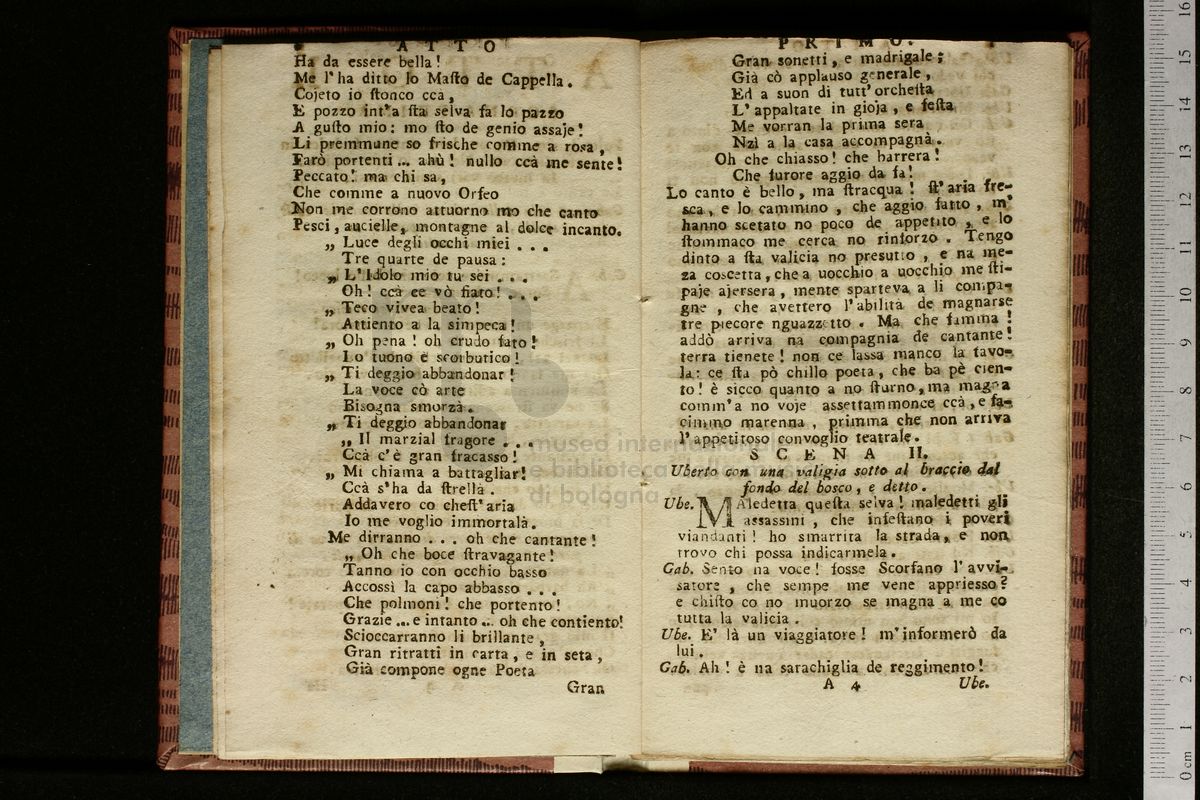 ATTO
Ha da essere bella!
Me l'ha ditto lo Maſto de Cappella.
Cojeto io ſtonco ccà,
E pozzo int'a ſta selva fa lo pazzo
A guſto mio: mo ſto de genio assaje!
Li premmune so frische comme a rosa,
Farò portenti... ahù! nullo ccà me sente!
Peccato! ma chi sa,
Che comme a nuovo Orfeo
Non me corrono attuorno mo che canto
Pesci, aucielle, montagne al dolce incanto.
„ Luce degli occhi miei ...
Tre quarte de pausa:
„ L'Idolo mio tu sei ...
Oh! ccà ce vò fiato! ...
„ Teco vivea beato!
Attiento a la simpeca!
„ Oh pena! oh crudo fato!
Lo tuono è scorbutico!
„ Ti deggio abbandonar!
La voce cò arte
Bisogna smorzà.
„ Ti deggio abbandonar
„ Il marzial fragore ...
Ccà c'è gran fracasso!
„ Mi chiama a battagliar!
Ccà s'ha da ſtrellà.
Addavero co cheſt'aria
Io me voglio immortalà.
Me dirranno ... oh che cantante!
„ Oh che boce ſtravagante!
Tanno io con occhio basso
Accossì la capo abbasso ...
Che polmoni! che portento!
Grazie ... e intanto ... oh che contiento!
Scioccarranno li brillante,
Gran ritratti in carta, e in seta,
Già compone ogne Poeta
Gran
PRIMO.
Gran sonetti, e madrigale;
Già cò applauso generale,
Ed a suon di tutt'orcheſta
L'appaltate in gioja, e feſta
Me vorran la prima sera
Nzì a la casa accompagnà.
Oh che chiasso! che barrera!
Che furore aggio da fa!
Lo canto è bello, ma ſtracqua! ſt'aria fre-
sca, e lo cammino, che aggio fatto, m'
hanno scetato no poco de appetito, e lo
ſtommaco me cerca no rinforzo. Tengo
dinto a ſta valicia no presutto, e na me-
za coscetta, che a uocchio a uocchio me ſti-
paje ajersera, mente sparteva a li compa-
gne, che avettero l'abilità de magnarse
tre piecore nguazzetto. Ma che famma!
addò arriva na compagnia de cantante!
terra tienete! non ce lassa manco la tavo-
la: ce ſta pò chillo poeta, che ba pè cien-
to! è sicco quanto a no ſturno, ma magna
comm'a no voje assettammonce ccà, e fa-
cimmo marenna, primma che non arriva
l'appetitoso convoglio teatrale.
SCENA II.
Uberto con una valigia sotto al braccio dal
fondo del bosco, e detto.
Ube. MAledetta queſta selva! maledetti gli
assassini, che infeſtano i poveri
viandanti! ho smarrita la strada, e non
trovo chi possa indicarmela.
Gab. Sento na voce! fosse Scorfano l'avvi-
satore, che sempe me vene appriesso?
e chiſto co no muorzo se magna a me co
tutta la valicia.
Ube. E' là un viaggiatore! m'informerò da
lui.
Gab. Ah! è na sarachiglia de reggimento!
A 4 Ube.
museo internazionale
e biblioteca della musica
di bologna
16
15
14
13
12
11
10
9
8
7
6
5
4
3
2
1
0 cm